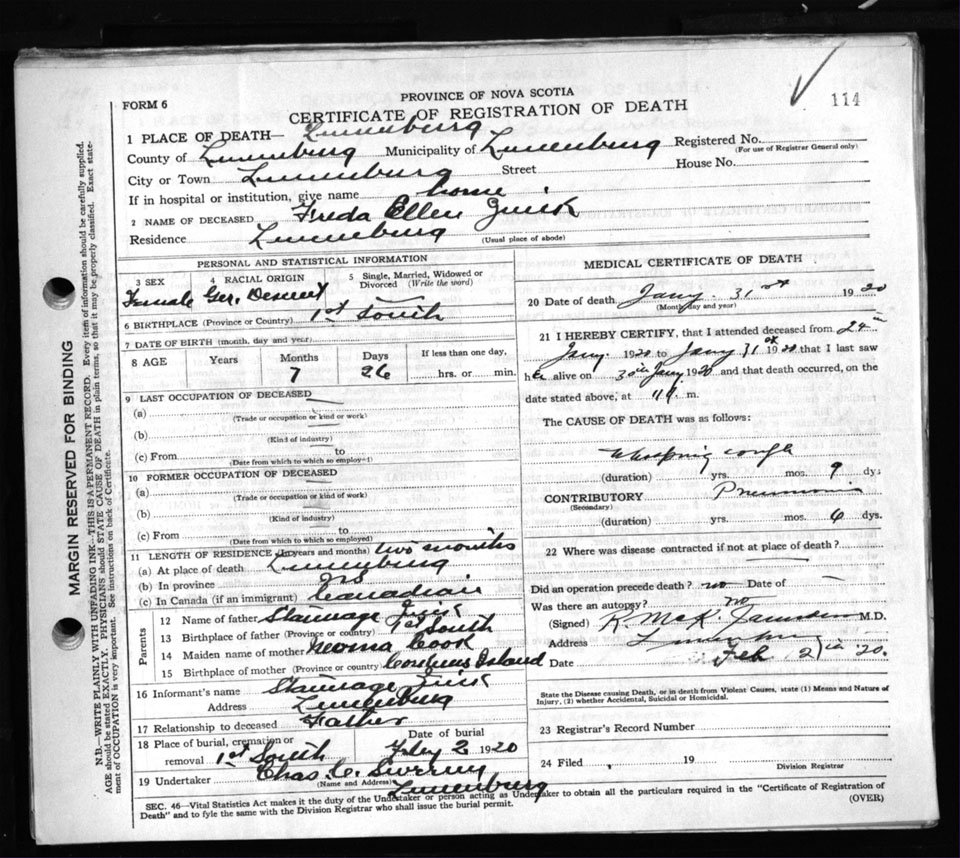 FORM 6
PROVINCE OF NOVA SCOTIA
CERTIFICATE OF REGISTRATION OF DEATH
114
1 PLACE OF DEATH— Lunenburg
County of Lunenburg Municipality of Lunenburg Registered No.
(For use of Registrar General only)
City or Town Lunenburg Street House No.
If in hospital or institution, give name home
2 NAME OF DECEASED Freda Ellen
Residence Lunenburg (Usual place of abode)
PERSONAL AND STATISTICAL INFORMATION
3 SEX 4 RACIAL ORIGIN 5 Single, Married, Widowed or Divorced (Write the word)
Female Ger. Descent
6 BIRTHPLACE (Province or Country) 1st South
7 DATE OF BIRTH (month, day and year)
8 AGE Years Months Days If less than one day,
7 26 hrs. or min.
9 LAST OCCUPATION OF DECEASED
(a)
(Trade or occupation or kind or work)
(b)
(Kind of industry)
(c) From to
(Date from which to which so employed)
10 FORMER OCCUPATION OF DECEASED
(a)
(Trade or occupation or kind of work)
(b)
(Kind of industry)
(c) From to
(Date from which to which so employed)
11 LENGTH OF RESIDENCE (In years and months) two months
(a) At place of death Lunenburg
(b) In province NS
(c) In Canada (if an immigrant) Canadian
Parents
12 Name of father
13 Birthplace of father (Province or country) 1st South
14 Maiden name of mother Cook
15 Birthplace of mother (Province or country) Island
16 Informant's name
Address Lunenburg
17 Relationship to deceased Father
18 Place of burial, cremation or removal 1st South Date of burial Feby 2 1920
19 Undertaker Chas. C. Sweeny
(Name and Address) Lunenburg
MEDICAL CERTIFICATE OF DEATH
20 Date of death Jany. 31st 1920
(Month, day and year)
21 I HEREBY CERTIFY, that I attended deceased from 24th
Jany. 1920 to Jany 31st 1920 that I last saw
her alive on 30th Jany 1920 and that death occurred, on the
date stated above, at m.
The CAUSE OF DEATH was as follows:
Whooping cough
(duration) yrs. mos. 9 dys
CONTRIBUTORY Pneumonia
(Secondary)
(duration) yrs. mos. 6 dys.
22 Where was disease contracted if not at place of death?
Did an operation precede death? no Date of
Was there an autopsy? no
(Signed) R. McK. M.D.
Address Lunenburg
Date Feb 2 '20.
State the Disease causing Death, or in death from Violent Causes, state (1) Means and Nature of
Injury, (2) whether Accidental, Suicidal or Homicidal.
23 Registrar's Record Number
24 Filed 19 Division Registrar
SEC. 46—Vital Statistics Act makes it the duty of the Undertaker or person acting as Undertaker to obtain all the particulars required in the "Certificate of Registration of
Death" and to fyle the same with the Division Registrar who shall issue the burial permit.
(OVER)
MARGIN RESERVED FOR BINDING
N.B.—WRITE PLAINLY WITH UNFADING INK—THIS IS A PERMANENT RECORD. Every item of information should be carefully supplied.
AGE should be stated EXACTLY. PHYSICIANS should STATE CAUSE OF DEATH in plain terms, so that it may be properly classified. Exact state-
ment of OCCUPATION is very important. See instructions on back of Certificate.